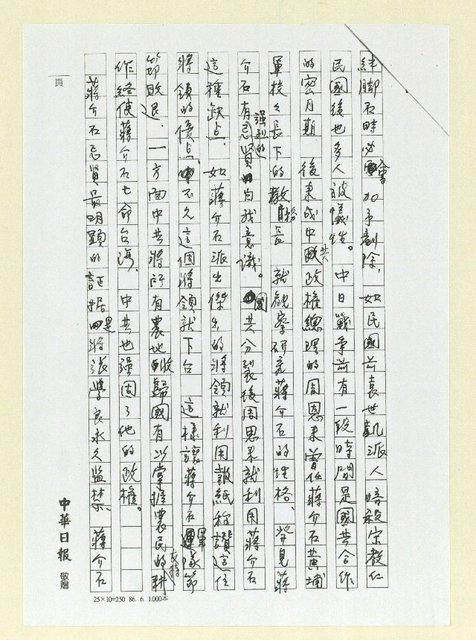 絆脚石時必會加予剷除，如民國前袁世凱派人暗殺宋教仁
民國後也多人被犧牲。中日戰爭前有一段時間是國共合作
的密月期，後來成中共政權總理的周恩來曾任蔣介石黃埔
軍校校長下的教務長，就觀察研究蔣介石的性格，學見蔣
介石有忌賢強烈的自我意識。國共分裂後周恩來就利用蔣介石
這種缺点，如蔣介石派出傑出的將領就利用報紙称讚這位
將領的優点，不久這個將領就下台，這樣讓蔣介石軍隊節
節敗退，一方面中共將所有農地收歸國有以掌握農民的耕
作終使蔣介石亡命台灣，中共也强固了他的政權。
蔣介石忌賢最明顯的証据是將張學良永久監禁。蔣介石
頁
中華日報 敬贈
25×10=250 86. 6. 1.000本